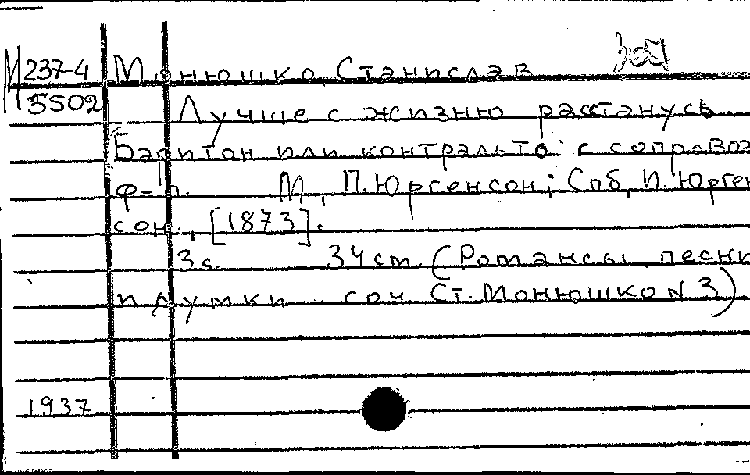 М 237-4 Монюшко, Станислав
5502 Лучше с жизнью расстанусь
Баритон или контральто с сопровож
ф-п. М., П. Юргенсон; Спб, И. Юрген
сон, [1873].
3 с. 34 см. (Романсы песни
и думки соч. Ст. Монюшко N 3)
1937